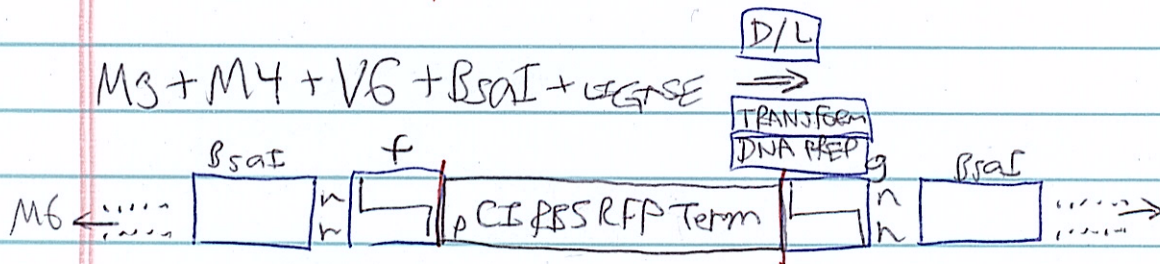 D/L
M3 + M4 + V6 + BsaI + LIGASE ⟹
TRANSFORM
DNA PREP
BsaI f g BsaI
M6 n n pCI RBS RFP Term n n